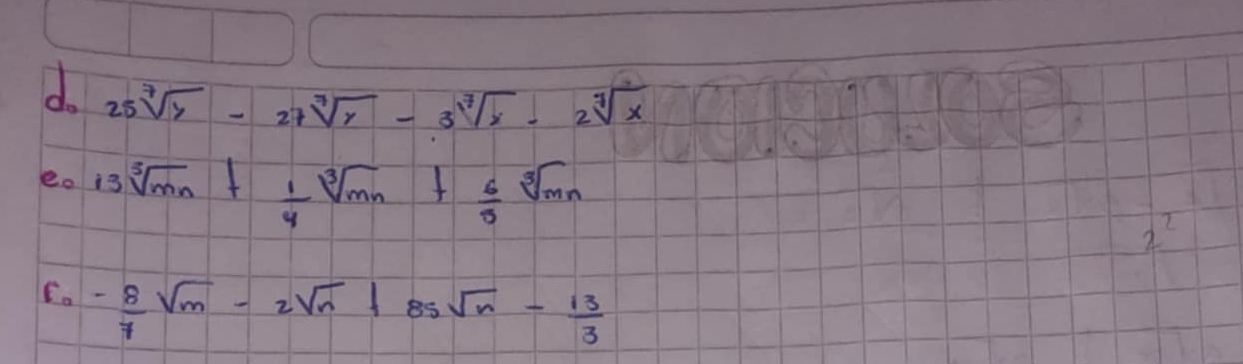 d. 25 ⁷√x - 27 ⁷√x - 3 ⁷√x - 2 ⁷√x
e. 13 ³√mn + 1/4 ³√mn + 6/5 ³√mn
f. - 8/7 √m - 2√n + 85 √n - 13/3
2²